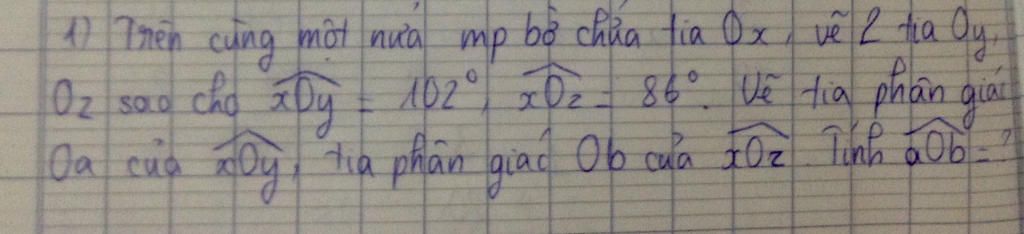 1) Trên cùng một nửa mp bờ chứa tia Ox, vẽ 2 tia Oy,
Oz sao cho xOy = 102°, xOz = 86°. Vẽ tia phân giác
Oa của xOy, tia phân giác Ob của xOz. Tính aOb = ?